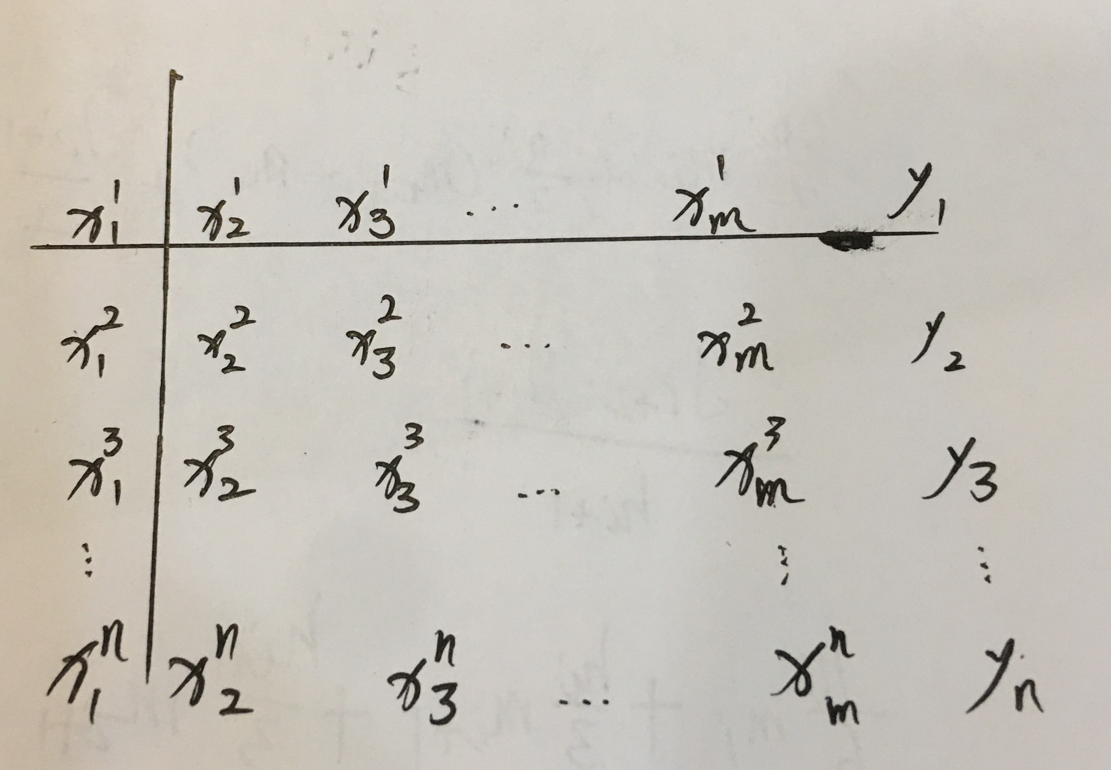 x₁¹ x₂¹ x₃¹ ... xₘ¹ y₁
x₁² x₂² x₃² ... xₘ² y₂
x₁³ x₂³ x₃³ ... xₘ³ y₃
⋮ ⋮ ⋮
x₁ⁿ x₂ⁿ x₃ⁿ ... xₘⁿ yₙ